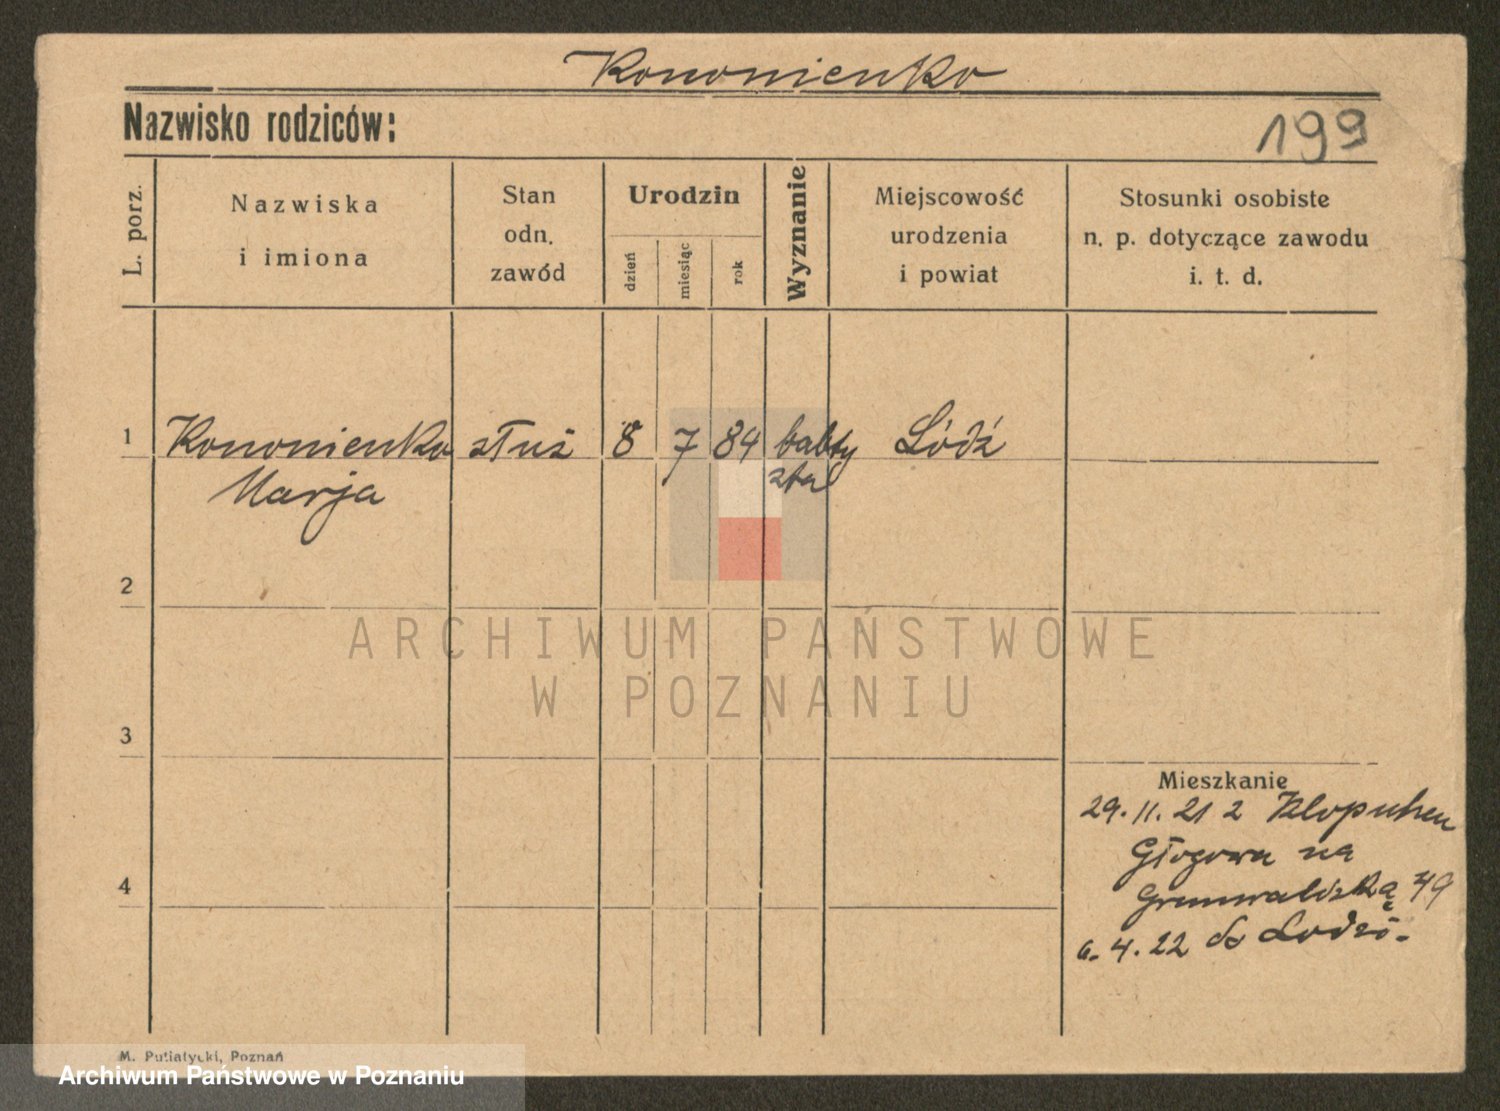 Kononienko
Nazwisko rodziców:
199
L. porz.
Nazwiska
i imiona
Stan
odn.
zawód
Urodzin
dzień
miesiąc
rok
Wyznanie
Miejscowość
urodzenia
i powiat
Stosunki osobiste
n. p. dotyczące zawodu
i. t. d.
1 Kononienko służ 8 7 84 babty Łódź
Marja
sta
2
ARCHIWUM PAŃSTWOWE
W POZNANIU
3
Mieszkanie
29. 11. 21 z
Głogowa na
Grunwaldzką 49
4
6. 4. 22 do Lodzi.
M. Putiatycki, Poznań
Archiwum Państwowe w Poznaniu